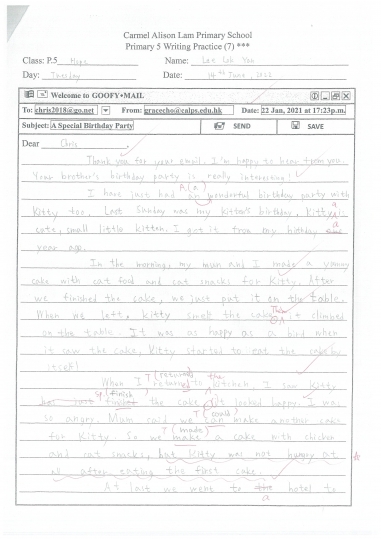 Carmel Alison Lam Primary School
Primary 5 Writing Practice (7) ***
Class: P.5 Hope Name: Lee Lok Yan
Day: Tuesday Date: 14th June, 2022
Welcome to GOOFY•MAIL
To: chris2018@go.net From: gracecho@calps.edu.hk Date: 22 Jan, 2021 at 17:23p.m.
Subject: A Special Birthday Party SEND SAVE
Dear Chris,
Thank you for your email. I'm happy to hear from you.
Your brother's birthday party is really interesting!
A(a)
I have just had an wonderful birthday party with
Kitty too. Last Sunday was my kitten's birthday, Kitty is a
cute, small little kitten. I got it from my birthday a
year ago.
In the morning, my mum and I made a yummy
cake with cat food and cat snacks for Kitty. After
we finished the cake, we just put it on the table.
When we left, kitty smelt the cake. Then it climbed
on the table. It was as happy as a bird when
it saw the cake. Kitty started to eat the cake by
itself!
T (returned) the
When I returned to kitchen, I saw kitty
(finish)
has just finished the cake. It looked happy. I was
T (could)
so angry. Mum said we can make another cake
T (made)
for Kitty. So we make a cake with chicken
and cat snacks, but Kitty was not hungry at
all after eating the first cake.
At last we went to the hotel to
a